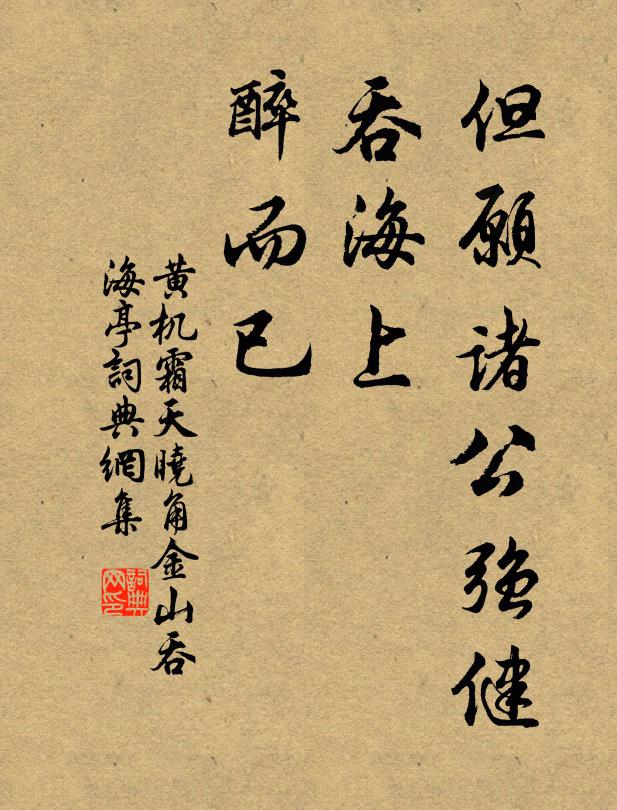 但願诸公強健
吞海上
醉而已
黄机霜天曉角金山吞
海亭詞典網集
詞典
网印